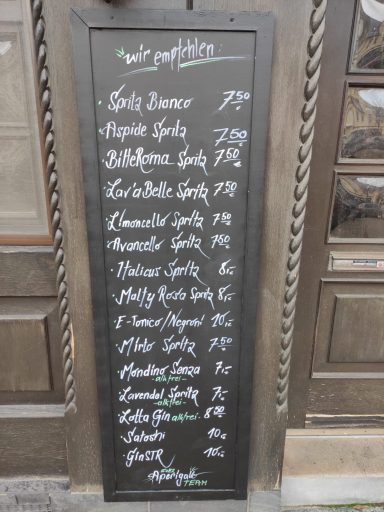 wir empfehlen:
· Spritz Bianco 7.50
· Aspide Spritz 7.50
· BitteRoma Spritz 7.50
· Lav'aBelle Spritz 7.50
· Limoncello Spritz 7.50
· Avancello Spritz 7.50
· Italicus Spritz 8,-
· Malfy Rosa Spritz 8,-
· E-Tonico/Negroni 10,-
· Mirto Spritz 7.50
· Mondino Senza 7,-
-alkfrei-
· Lavendel Spritz 7,-
-alkfrei-
· Lotta Gin alkfrei· 8.50
· Satoshi 10€
· GinSTR 10,-
Aperigale
TEAM